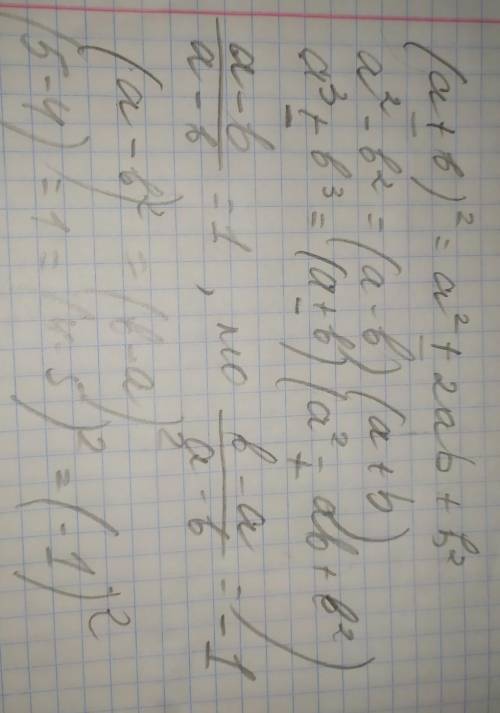 (a ± b)² = a² ± 2ab + b²
a² - b² = (a - b)(a + b)
a³ ± b³ = (a ± b)(a² ∓ ab + b²)
(a - b)/(a - b) = 1, но (b - a)/(a - b) = -1
(a - b)² = (b - a)²
(5 - 4)² = 1 = (4 - 5)² = (-1)²